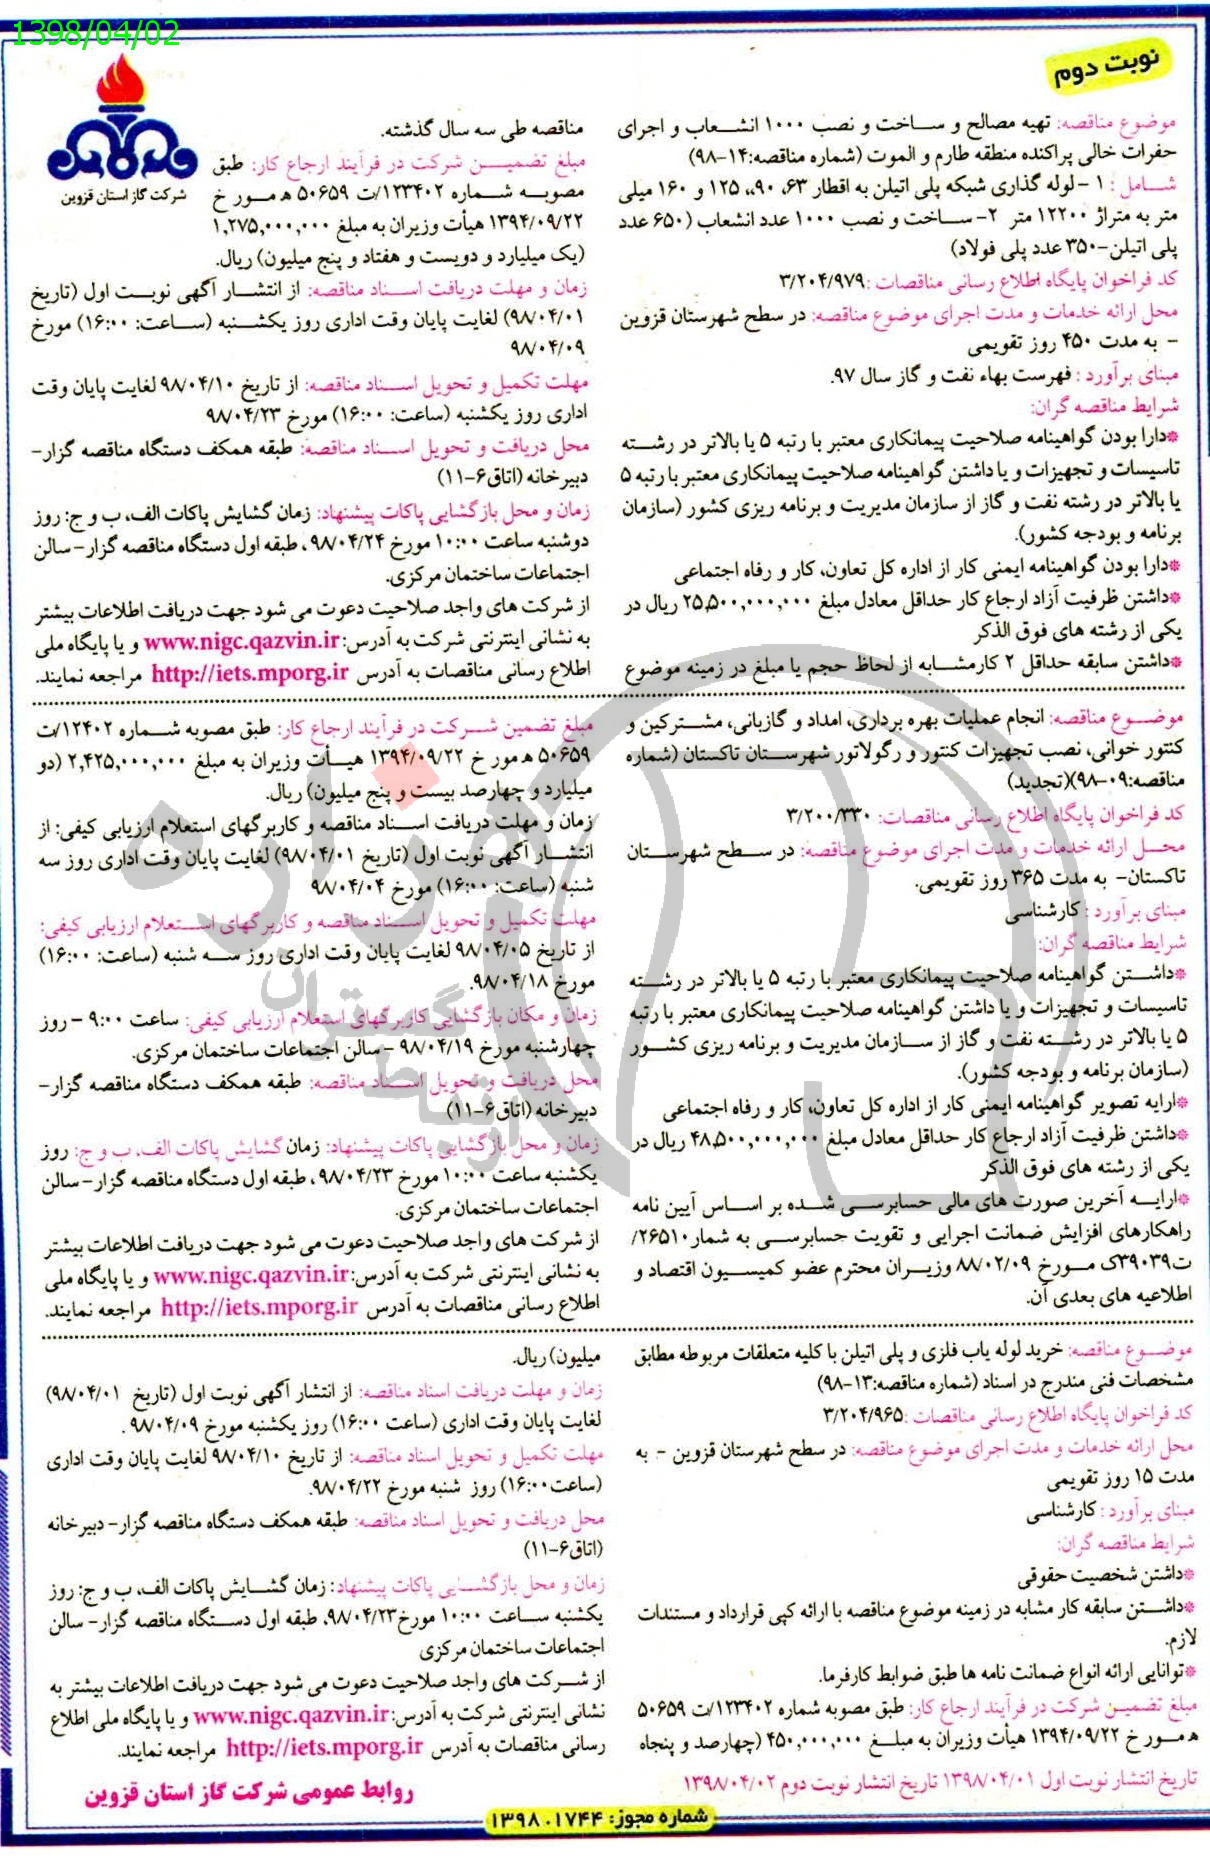 1398/04/02
نوبت دوم
شرکت گاز استان قزوین
موضوع مناقصه: تهیه مصالح و ساخت و نصب ۱۰۰۰ انشعاب و اجرای
حفرات خالی پراکنده منطقه طارم و الموت (شماره مناقصه:۱۴-۹۸)
شامل : ۱ -لوله گذاری شبکه پلی اتیلن به اقطار ۶۳، ۹۰،، ۱۲۵ و ۱۶۰ میلی
متر به متراژ ۱۲۲۰۰ متر ۲- ساخت و نصب ۱۰۰۰ عدد انشعاب (۶۵۰ عدد
پلی اتیلن-۳۵۰ عدد پلی فولاد)
کد فراخوان پایگاه اطلاع رسانی مناقصات :۳/۲۰۴/۹۷۹
محل ارائه خدمات و مدت اجرای موضوع مناقصه: در سطح شهرستان قزوین
- به مدت ۴۵۰ روز تقویمی
مبنای برآورد : فهرست بهاء نفت و گاز سال ۹۷.
شرایط مناقصه گران:
*دارا بودن گواهینامه صلاحیت پیمانکاری معتبر با رتبه ۵ یا بالاتر در رشته
تاسیسات و تجهیزات و یا داشتن گواهینامه صلاحیت پیمانکاری معتبر با رتبه ۵
یا بالاتر در رشته نفت و گاز از سازمان مدیریت و برنامه ریزی کشور (سازمان
برنامه و بودجه کشور).
*دارا بودن گواهینامه ایمنی کار از اداره کل تعاون، کار و رفاه اجتماعی
*داشتن ظرفیت آزاد ارجاع کار حداقل معادل مبلغ ۲۵,۵۰۰,۰۰۰,۰۰۰ ریال در
یکی از رشته های فوق الذکر
*داشتن سابقه حداقل ۲ کارمشابه از لحاظ حجم یا مبلغ در زمینه موضوع
مناقصه طی سه سال گذشته.
مبلغ تضمین شرکت در فرآیند ارجاع کار: طبق
مصوبه شماره ۱۲۳۴۰۲/ت ۵۰۶۵۹ ه مورخ
۱۳۹۴/۰۹/۲۲ هیأت وزیران به مبلغ ۱,۲۷۵,۰۰۰,۰۰۰
(یک میلیارد و دویست و هفتاد و پنج میلیون) ریال.
زمان و مهلت دریافت اسناد مناقصه: از انتشار آگهی نوبت اول (تاریخ
۹۸/۰۴/۰۱) لغایت پایان وقت اداری روز یکشنبه (ساعت: ۱۶:۰۰) مورخ
۹۸/۰۴/۰۹
مهلت تکمیل و تحویل اسناد مناقصه: از تاریخ ۹۸/۰۴/۱۰ لغایت پایان وقت
اداری روز یکشنبه (ساعت: ۱۶:۰۰) مورخ ۹۸/۰۴/۲۳
محل دریافت و تحویل اسناد مناقصه: طبقه همکف دستگاه مناقصه گزار-
دبیرخانه (اتاق۶-۱۱)
زمان و محل بازگشایی پاکات پیشنهاد: زمان گشایش پاکات الف، ب و ج: روز
دوشنبه ساعت ۱۰:۰۰ مورخ ۹۸/۰۴/۲۴ ، طبقه اول دستگاه مناقصه گزار-سالن
اجتماعات ساختمان مرکزی.
از شرکت های واجد صلاحیت دعوت می شود جهت دریافت اطلاعات بیشتر
به نشانی اینترنتی شرکت به آدرس:www.nigc.qazvin.ir و یا پایگاه ملی
اطلاع رسانی مناقصات به آدرس http://iets.mporg.ir مراجعه نمایند.
موضوع مناقصه: انجام عملیات بهره برداری، امداد و گازبانی، مشترکین و
کنتور خوانی، نصب تجهیزات کنتور و رگولاتور شهرستان تاکستان (شماره
مناقصه:۰۹-۹۸)(تجدید)
کد فراخوان پایگاه اطلاع رسانی مناقصات: ۳/۲۰۰/۳۳۰
محل ارائه خدمات و مدت اجرای موضوع مناقصه: در سطح شهرستان
تاکستان- به مدت ۳۶۵ روز تقویمی.
مبنای برآورد : کارشناسی
شرایط مناقصه گران:
*داشتن گواهینامه صلاحیت پیمانکاری معتبر با رتبه ۵ یا بالاتر در رشته
تاسیسات و تجهیزات و یا داشتن گواهینامه صلاحیت پیمانکاری معتبر با رتبه
۵ یا بالاتر در رشته نفت و گاز از سازمان مدیریت و برنامه ریزی کشور
(سازمان برنامه و بودجه کشور).
*ارایه تصویر گواهینامه ایمنی کار از اداره کل تعاون، کار و رفاه اجتماعی
*داشتن ظرفیت آزاد ارجاع کار حداقل معادل مبلغ ۴۸,۵۰۰,۰۰۰,۰۰۰ ریال در
یکی از رشته های فوق الذکر
*ارایه آخرین صورت های مالی حسابرسی شده بر اساس آیین نامه
راهکارهای افزایش ضمانت اجرایی و تقویت حسابرسی به شمار۲۶۵۱۰/
ت۳۹۰۳۹ک مورخ ۸۸/۰۲/۰۹ وزیران محترم عضو کمیسیون اقتصاد و
اطلاعیه های بعدی آن.
مبلغ تضمین شرکت در فرآیند ارجاع کار: طبق مصوبه شماره ۱۲۴۰۲/ت
۵۰۶۵۹ ه مورخ ۱۳۹۴/۰۹/۲۲ هیأت وزیران به مبلغ ۲,۴۲۵,۰۰۰,۰۰۰ (دو
میلیارد و چهارصد بیست و پنج میلیون) ریال.
زمان و مهلت دریافت اسناد مناقصه و کاربرگهای استعلام ارزیابی کیفی: از
انتشار آگهی نوبت اول (تاریخ ۹۸/۰۴/۰۱) لغایت پایان وقت اداری روز سه
شنبه (ساعت: ۱۶:۰۰) مورخ ۹۸/۰۴/۰۴
مهلت تکمیل و تحویل اسناد مناقصه و کاربرگهای استعلام ارزیابی کیفی:
از تاریخ ۹۸/۰۴/۰۵ لغایت پایان وقت اداری روز سه شنبه (ساعت: ۱۶:۰۰)
مورخ ۹۸/۰۴/۱۸.
زمان و مکان بازگشایی کاربرگهای استعلام ارزیابی کیفی: ساعت ۹:۰۰ - روز
چهارشنبه مورخ ۹۸/۰۴/۱۹ - سالن اجتماعات ساختمان مرکزی.
محل دریافت و تحویل اسناد مناقصه: طبقه همکف دستگاه مناقصه گزار-
دبیرخانه (اتاق۶-۱۱)
زمان و محل بازگشایی پاکات پیشنهاد: زمان گشایش پاکات الف، ب و ج: روز
یکشنبه ساعت ۱۰:۰۰ مورخ ۹۸/۰۴/۲۳ ، طبقه اول دستگاه مناقصه گزار-سالن
اجتماعات ساختمان مرکزی.
از شرکت های واجد صلاحیت دعوت می شود جهت دریافت اطلاعات بیشتر
به نشانی اینترنتی شرکت به آدرس:www.nigc.qazvin.ir و یا پایگاه ملی
اطلاع رسانی مناقصات به آدرس http://iets.mporg.ir مراجعه نمایند.
موضوع مناقصه: خرید لوله یاب فلزی و پلی اتیلن با کلیه متعلقات مربوطه مطابق
مشخصات فنی مندرج در اسناد (شماره مناقصه:۱۳-۹۸)
کد فراخوان پایگاه اطلاع رسانی مناقصات :۳/۲۰۴/۹۶۵
محل ارائه خدمات و مدت اجرای موضوع مناقصه: در سطح شهرستان قزوین - به
مدت ۱۵ روز تقویمی
مبنای برآورد : کارشناسی
شرایط مناقصه گران:
*داشتن شخصیت حقوقی
*داشتن سابقه کار مشابه در زمینه موضوع مناقصه با ارائه کپی قرارداد و مستندات
لازم.
*توانایی ارائه انواع ضمانت نامه ها طبق ضوابط کارفرما.
مبلغ تضمین شرکت در فرآیند ارجاع کار: طبق مصوبه شماره ۱۲۳۴۰۲/ت ۵۰۶۵۹
ه مورخ ۱۳۹۴/۰۹/۲۲ هیأت وزیران به مبلغ ۴۵۰,۰۰۰,۰۰۰ (چهارصد و پنجاه
میلیون) ریال.
زمان و مهلت دریافت اسناد مناقصه: از انتشار آگهی نوبت اول (تاریخ ۹۸/۰۴/۰۱)
لغایت پایان وقت اداری (ساعت ۱۶:۰۰) روز یکشنبه مورخ ۹۸/۰۴/۰۹ .
مهلت تکمیل و تحویل اسناد مناقصه: از تاریخ ۹۸/۰۴/۱۰ لغایت پایان وقت اداری
(ساعت۱۶:۰۰) روز شنبه مورخ ۹۸/۰۴/۲۲.
محل دریافت و تحویل اسناد مناقصه: طبقه همکف دستگاه مناقصه گزار- دبیرخانه
(اتاق۶-۱۱)
زمان و محل بازگشایی پاکات پیشنهاد: زمان گشایش پاکات الف، ب و ج: روز
یکشنبه ساعت ۱۰:۰۰ مورخ۹۸/۰۴/۲۳، طبقه اول دستگاه مناقصه گزار- سالن
اجتماعات ساختمان مرکزی
از شرکت های واجد صلاحیت دعوت می شود جهت دریافت اطلاعات بیشتر به
نشانی اینترنتی شرکت به آدرس:www.nigc.qazvin.ir و یا پایگاه ملی اطلاع
رسانی مناقصات به آدرس http://iets.mporg.ir مراجعه نمایند.
تاریخ انتشار نوبت اول ۱۳۹۸/۰۴/۰۱ تاریخ انتشار نوبت دوم ۱۳۹۸/۰۴/۰۲
روابط عمومی شرکت گاز استان قزوین
شماره مجوز: ۱۳۹۸.۱۷۴۴
هزاره
ارتباط گستران